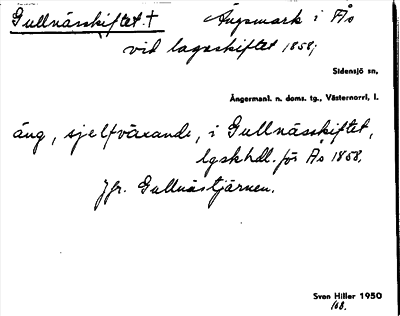 Gullnässkiftet.† Ängsmark i Ås
vid lagaskiftet 1858;
Sidensjö sn,
Ångermanl. n. doms. tg., Västernorrl, l.
äng, sjelfväxande, i Gullnässkiftet,
lgskhdl. för Ås 1858.
Jfr. Gullnästjärnen.
Sven Hiller 1950
168.